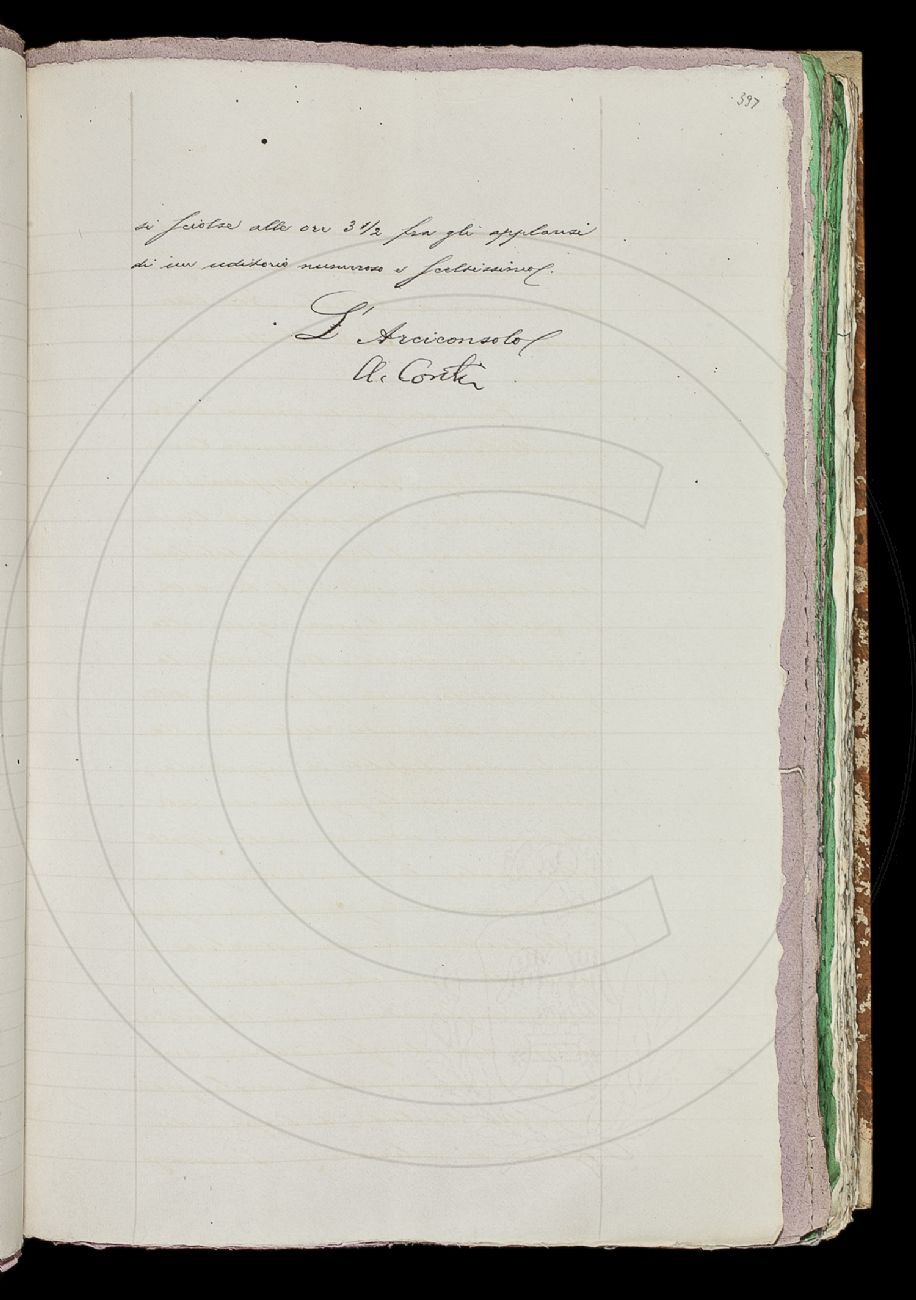 397
si sciolse alle ore 3 1/2 fra gli applausi
di un uditorio numeroso e sceltissimo.
L' Arciconsolo
A. Conti